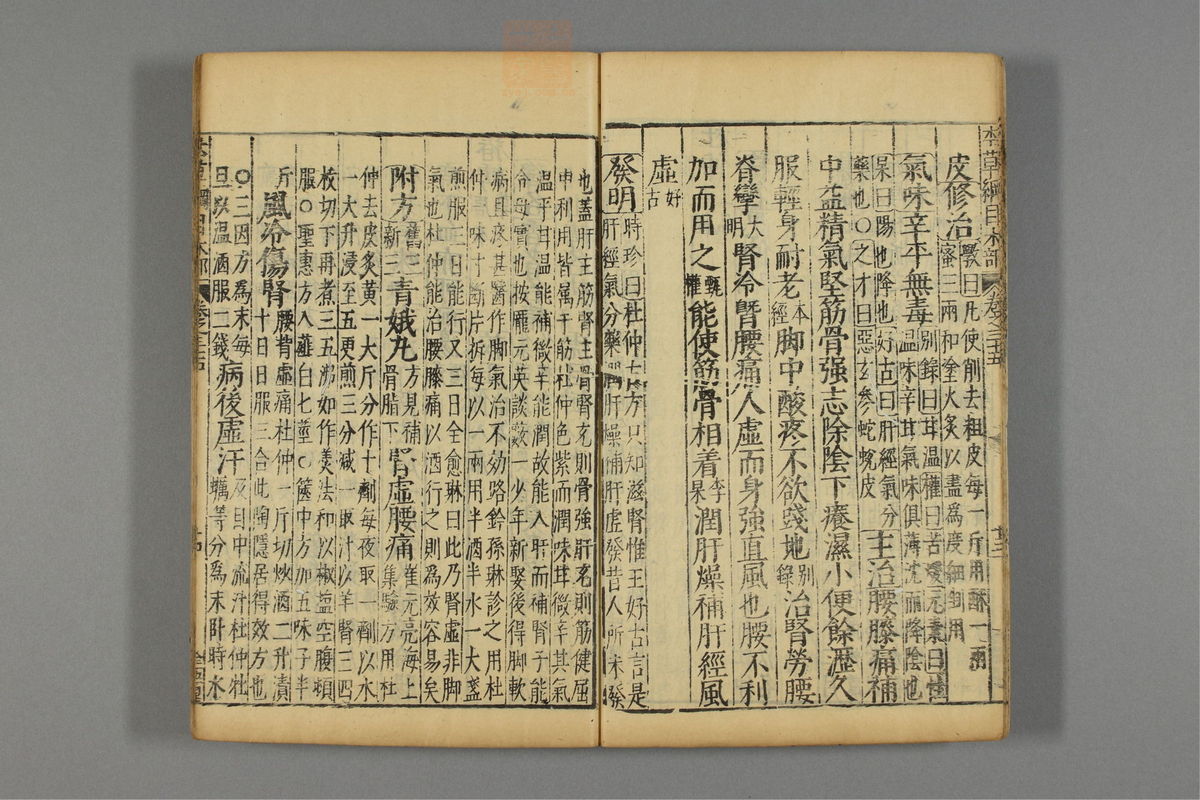 本草綱目木部 卷之三十五 廿三
皮修治斆曰凡使削去粗皮每一斤用酥一兩蜜三兩和塗火炙以盡爲度細剉用
氣味辛平無毒別錄曰甘溫權曰苦暖元素曰性溫味辛甘氣味俱薄沈而降陰也
杲曰陽也降也好古曰肝經氣分藥也○之才曰惡玄參蛇蛻皮主治腰膝痛補
中益精氣堅筋骨强志除陰下癢濕小便餘瀝久
服輕身耐老本經脚中酸疼不欲踐地別錄治腎勞腰
脊攣大明腎冷䐴腰痛人虛而身強直風也腰不利
加而用之甄權能使筋骨相着李杲潤肝燥補肝經風
虛好古
發明時珍曰杜仲古方只知滋腎惟王好古言是肝經氣分藥潤肝燥補肝虛發昔人所未發
也蓋肝主筋腎主骨腎充則骨強肝充則筋健屈
伸利用皆屬于筋杜仲色紫而潤味甘微辛其氣
溫平甘溫能補微辛能潤故能入肝而補腎子能
令母實也按龐元英談藪一少年新娶後得脚軟
病且疼甚醫作脚氣治不効路鈐孫琳診之用杜
仲一味寸斷片拆每以一兩用半酒半水一大盞
煎服三日能行又三日全愈琳曰此乃腎虛非脚
氣也杜仲能治腰膝痛以酒行之則爲效容易矣
附方舊三新三青娥丸方見補骨脂下腎虛腰痛崔元亮海上集驗方用杜
仲去皮炙黃一大斤分作十劑每夜取一劑以水
一大升浸至五更煎三分減一取汁以羊腎三四
枚切下再煮三五沸如作羹法和以椒鹽空腹頓
服○聖惠方入薤白七莖○篋中方加五味子半
斤風冷傷腎腰背虛痛杜仲一斤切炒酒二升漬十日日服三合此陶隱居得效方也
○三因方爲末每旦以溫酒服二錢病後虛汗及目中流汁杜仲牡蠣等分爲末卧時水
本草綱目木部 卷之三十五 廿四